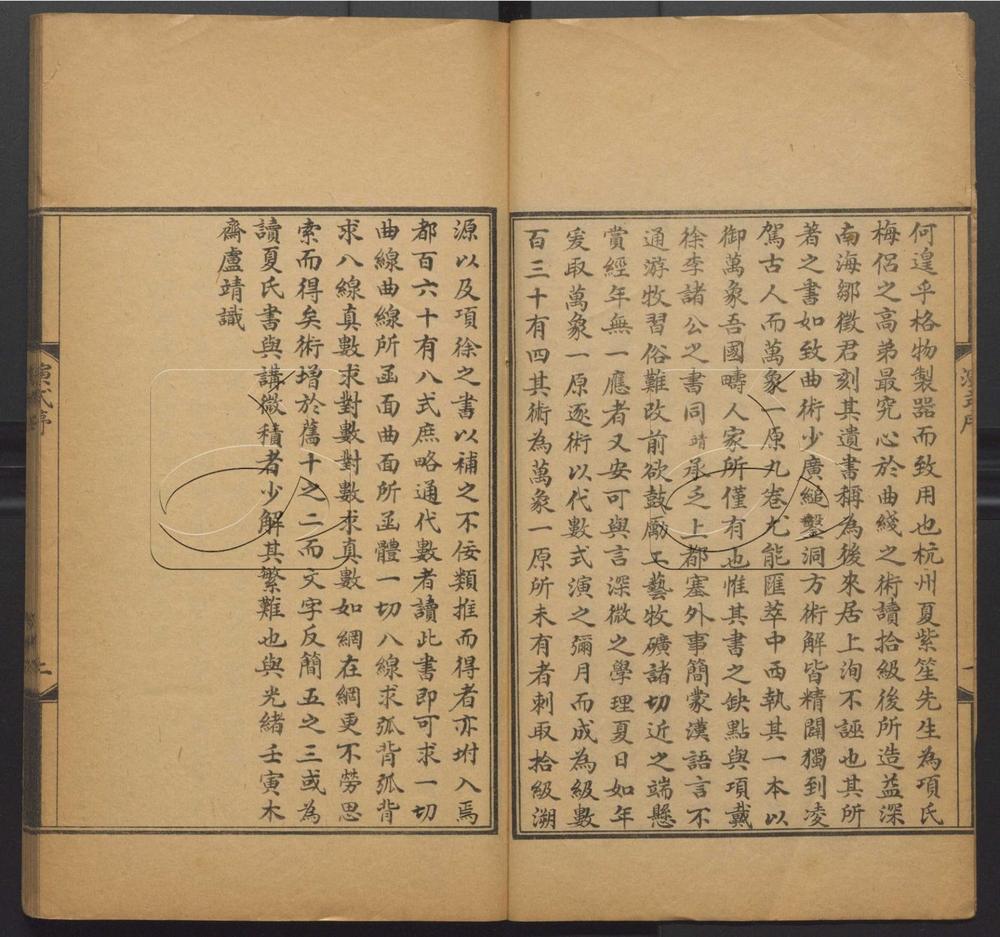 何遑乎格物製器而致用也杭州夏紫笙先生為項氏
梅侶之高弟最究心於曲綫之術讀拾級後所造益深
南海鄒徵君刻其遺書稱為後來居上洵不誣也其所
著之書如致曲術少廣縋鑿洞方術解皆精闢獨到凌
駕古人而萬象一原九卷尤能匯萃中西執其一本以
御萬象吾國疇人家所僅有也惟其書之缺點與項戴
徐李諸公之書同靖承乏上都塞外事簡蒙漢語言不
通游牧習俗難改前欲鼓勵工藝牧礦諸切近之端懸
賞經年無一應者又安可與言深微之學理夏日如年
爰取萬象一原逐術以代數式演之彌月而成為級數
百三十有四其術為萬象一原所未有者刺取拾級溯
源以及項徐之書以補之不佞類推而得者亦坿入焉
都百六十有八式庶略通代數者讀此書即可求一切
曲線曲線所函面曲面所函體一切八線求弧背弧背
求八線真數求對數對數求真數如網在綱更不勞思
索而得矣術增於舊十之二而文字反簡五之三或為
讀夏氏書與講微積者少解其繁難也與光緒壬寅木
齋盧靖識
演式序
二